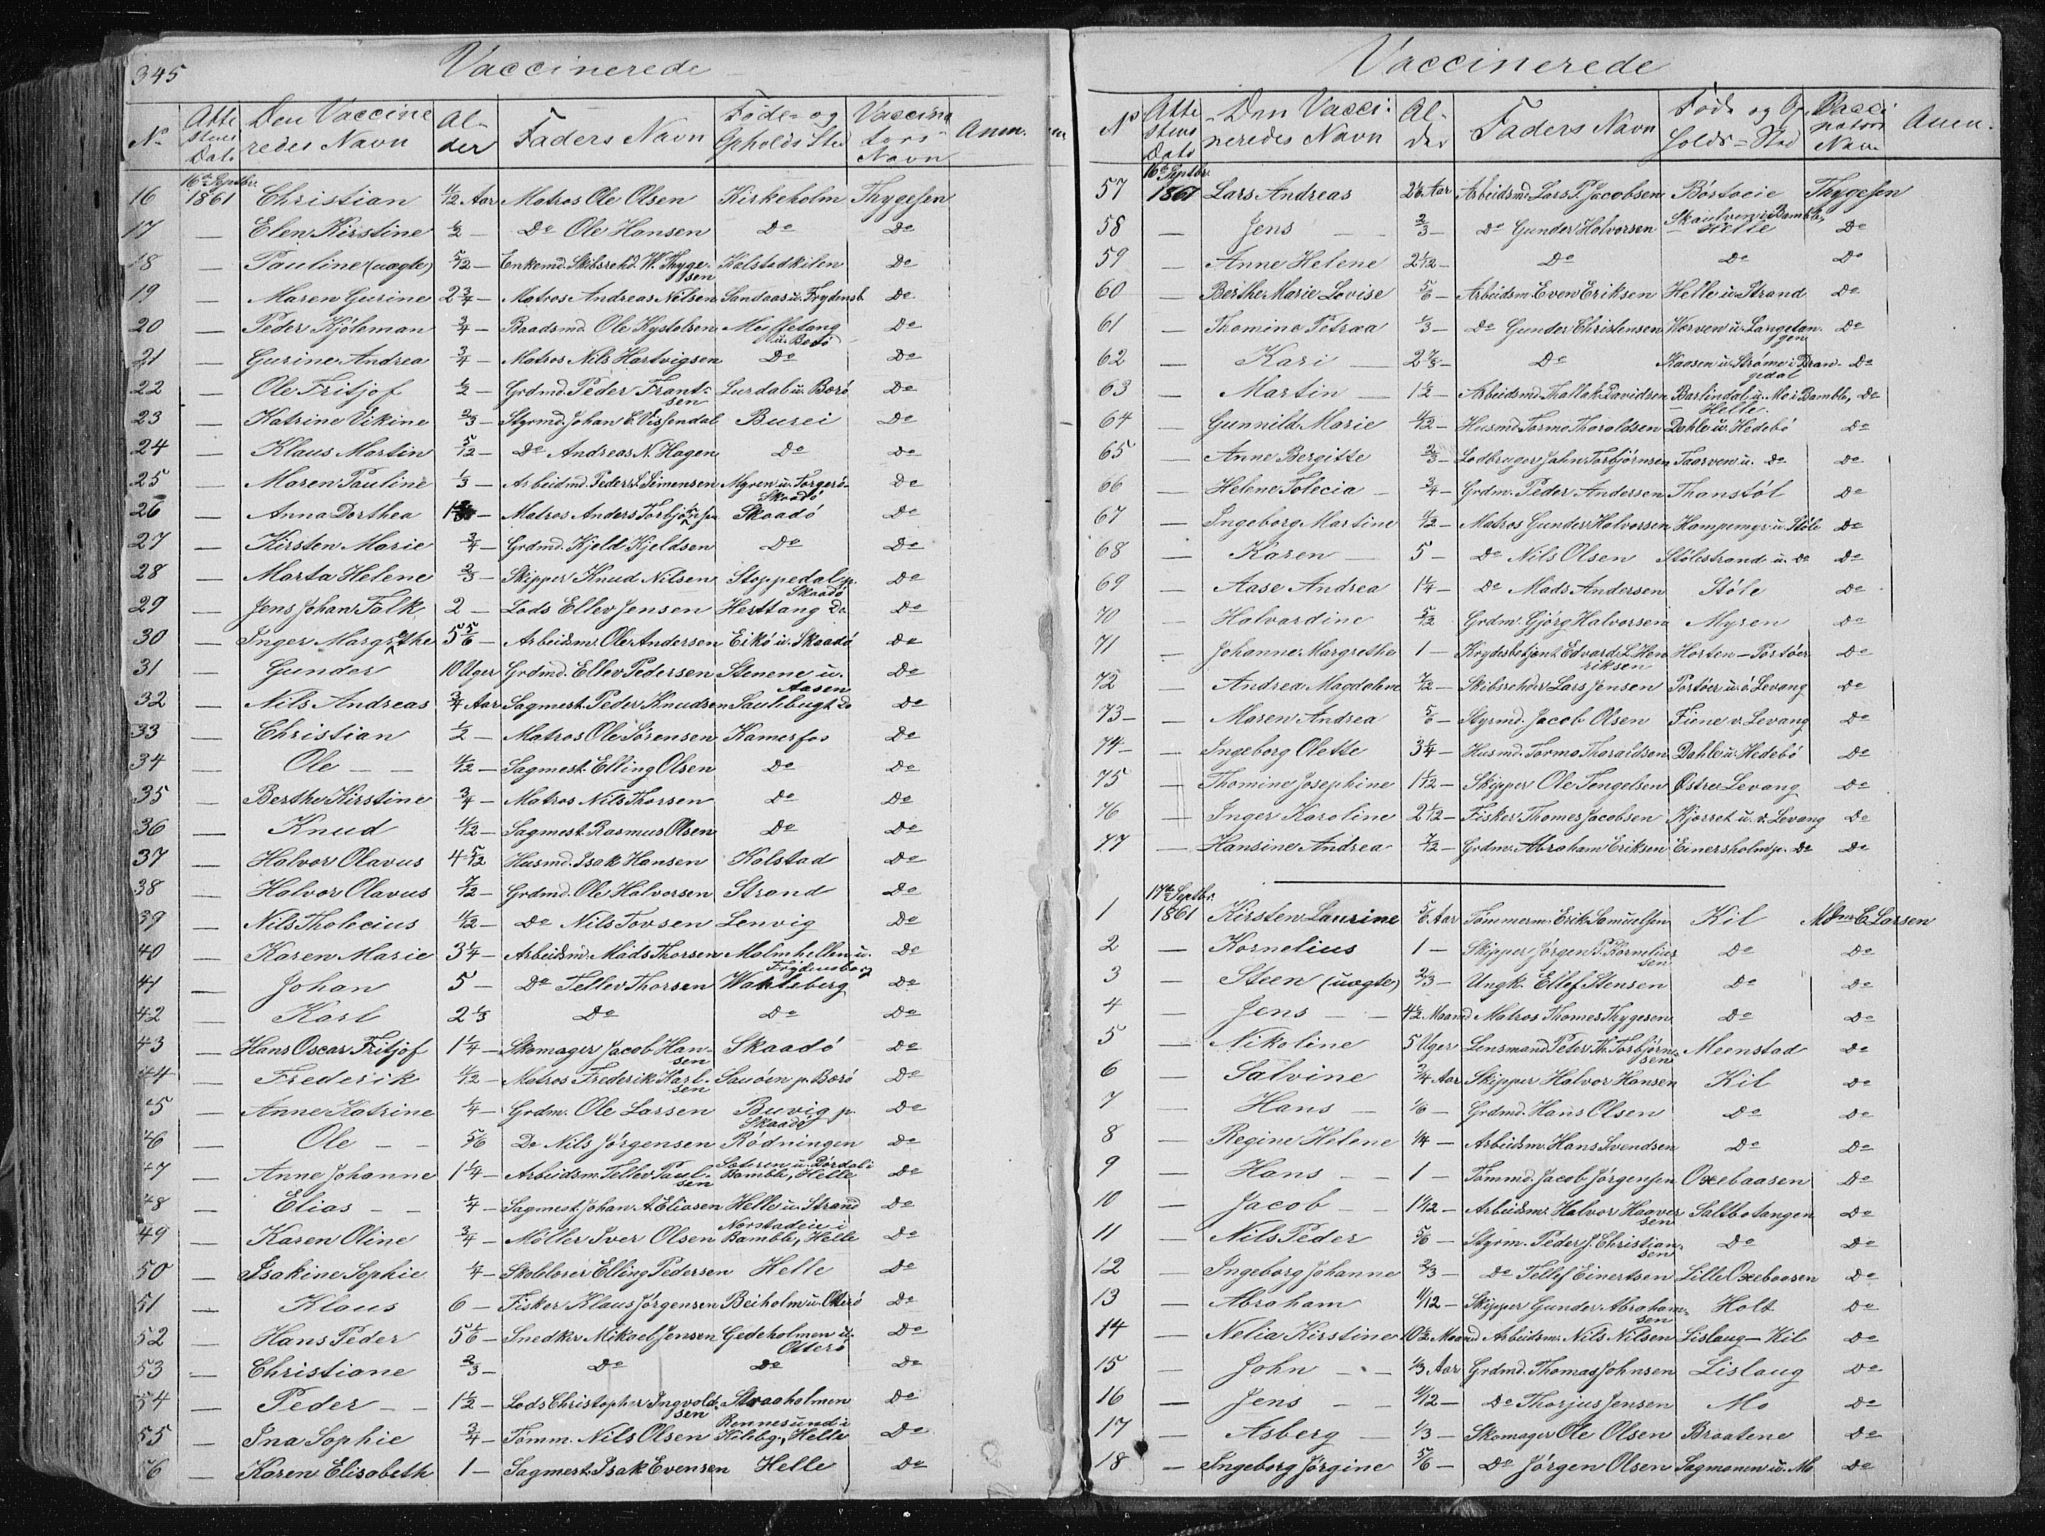 345 Vaccinerede
No Atte stens Dato Den Vaccine redes Navn Al- der Faders Navn Føde- og Opholds Sted Vaccina tors Navn Anm.
16 16de Septbr. 1861 Christian Aar Matros Ole Olsen Kirkeholm Thygesen
17 — Elen Kirstine ½ — Do Ole Hansen Do Do
18 — Pauline (uægte) 5/12 — Enkemd. Skibsrehd. W. Thygesen Kalstadkilen Do
19 — Maren Gurine 2 ¾ — Matros Andreas Nilsen Sandaas u. Frydensb. Do
20 — Peder Kjöleman ¾ — Baadsmd. Ole Do
21 — Gurine Andrea ¾ — Matros Nils Hartvigsen Do Do
22 — Ole Fritjof ½ — Grdmd. Peder Frantsen Lurdal u. Borö Do
23 — Katrine Vikine 2/3 — Styrmd. Johan E. Vissendal Burei Do
24 — Klaus Martin 5/12 — Do Andreas N. Hagen Do Do
25 — Maren Pauline 1/3 — Arbeidmd. Peder S. Simensen Myren u. Torgersö Skaadö Do
26 — Anna Dorthea — Matros Anders Torbjörnsen Skaadö Do
27 — Kirsten Marie ¾ — Grdmd. Kjeld Kjeldsen Do Do
28 — Marta Helene 2/3 — Skipper Knud Nilsen Stoppedal p. Skaadö Do
29 — Jens Johan Falk 2 — Lods Ellev Jensen Hesttang do Do
30 — Inger Margrethe 5 5/6 — Arbeidsm. Ole Andersen Eikö u. Skaadö Do
31 — Gunder 10 Uger Grdmd. Ellev Pedersen Stenene u. Aasen Do
32 — Nils Andreas ¾ Aar Sagmest. Peder Knudsen Saulebugt do Do
33 — Christian ½ — Matros Ole Sörensen Kamerfos Do
34 — Ole — — 1/12 — Sagmest. Elling Olsen Do Do
35 — Berthe Kirstine ¾ — Matros Nils Thorsen Do Do
36 — Knud — Sagmest. Rasmus Olsen Do Do
37 — Halvor Olavus 4 5/12 Husmd. Isak Hansen Kalstad Do
38 — Halvor Olavus 7/12 — Grdmd. Ole Halvorsen Strand Do
39 — Nils Tholecius — Do Nils Tovsen Lenvig Do
40 — Karen Marie 3 ¼ — Arbeidsm. Mads Thorsen Malmhellen u. Frydensborg Do
41 — Johan 5 — Do Tellev Thorsen Wahlsberg Do
42 — Karl 2 1/3 Do Do Do
43 — Hans Oscar Fritjof 1 ¼ — Skomager Jacob Hansen Skaadö Do
44 — Frederik — Matros Frederik Karlsen Sauöen p. Borö Do
45 — Anne Katrine ¼ — Grdm. Ole Larsen Buvig p. Skaadö Do
46 — Ole — — 5/6 — Do Nils Jørgensen Rödningen Do
47 — Anne Johanne 1 ¼ — Arbeidsm. Tellev Paulsen Bamble, Helle Do
48 — Elias — — ¼ — Sagmest. Johan A. Eliasen Helle u. Strand Do
49 — Karen Oline ¾ — Möller Iver Olsen Norstadeie i Bamble, Helle Do
50 — Isakine Sophie ¼ — Skolelærer Elling Pedersen Helle Do
51 — Klaus 6 — Fisker Klaus Jørgensen Beiholm u. Otterö Do
52 — Hans Peder 5 1/6 — Snedker Mikael Jensen Gedeholmen u. Otterö Do
53 — Christiane 2/3 — Do Do Do
54 — Peder — — 1 ½ — Lods Christopher Ingvoldsen Straaholmen Do
55 — Ina Sophie ¾ — Tömm. Nils Olsen Rennesund i Kilebg., Helle Do
56 — Karen Elisabeth 1 — Sagmest. Isak Evensen Helle Do
Vaccinerede
No Atte stens Dato Den Vacci- neredes Navn Al- der Faders Navn Føde og Op holds-Sted Vacci nators Navn Anm.
57 16de Septbr. 1861 Lars Andreas Aar Arbeidsmd. Lars P. Jacobsen Börtoeie Thygesen
58 — Jens — 2/3 — Do Gunder Halvorsen Bamble Helle Do
59 — Anne Helene 2 1/12 — Do Do Do
60 — Berthe Marie Lovise 5/6 — Arbeidsm. Even Eriksen Helle u. Strand Do
61 — Thomine Petrea 1/3 — Do Gunder Christensen Værven u. Langetangen Do
62 — Kari — 2 7/8 — Do Kaasen u. Strömo i Drangedal Do
63 — Martin — 1 ½ — Arbeidsmd. Thallak Davidsen Barlindal u. Mo i Bamble, Helle. Do
64 — Gunnild Marie — Husmd. Tormo Thoraldsen Dahle u. Hedebö Do
65 — Anne Bergitte 2/3 — Lodbruger Jahn Torbjörnsen Taarven u. do Do
66 — Helene Tolecia — ¾ — Grdm. Peder Andersen Thanstöl Do
67 — Ingeborg Martine — Matros Gunder Halvorsen Hampemyr u. Støle Do
68 — Karen — 5 — Do Nils Olsen Stölestrand u. do Do
69 — Aase Andrea 1 ¼ — Do Mads Andersen Støle Do
70 — Halvardine 5/12 — Grdm. Gjörg Halvorsen Myren Do
71 — Johanne Margrethe 1 — Krydsbetjent Edvard L. Henriksen Horten — Portöer Do
72 — Andrea Magdalene 7/12 — Skibsrehder Lars Jensen Portöer u. ö. Levang Do
73 — Maren Andrea 5/6 — Styrmd. Jacob Olsen Fiine v. Levang Do
74 — Ingeborg Olotte 3 ¼ — Husmd. Tormo Thoraldsen Dahle u. Hedebö Do
75 — Thomine Josephine 1 1/12 — Skipper Ole Tengelsen Østre Levang Do
76 — Inger Karoline 2 1/12 — Fisker Thomes Jacobsen Kjörret u. v. Levang Do
77 — Hansine Andrea 7/12 — Grdm. Abraham Eriksen Einersholm p. do Do
1 17de Septbr. 1861 Kirsten Laurine 5/6 Aar Tømmerm. Erik Samuelsen Kil Mdm E. Larsen
2 — Kornelius 1 — Skipper Jörgen P. Korneliussen Do Do
3 — Steen (uægte) 2/3 — Ungk. Ellef Stensen Do Do
4 — Jens — — 4 ½ Maand Matros Thomes Thygesen Do Do
5 — Nikoline 5 Uger Lensmand Peter Th. Torbjörnsen Meenstad Do
6 — Salvine ¾ Aar Skipper Halvor Hansen Kil Do
7 — Hans — 1/6 — Grdmd. Hans Olsen Do Do
8 — Regine Helene ¼ — Arbeidsm. Hans Svendsen Do Do
9 — Hans — — 1 — Tømmd. Jacob Jørgensen Oxebaasen Do
10 — Jacob — — 1 1/12 — Arbeidsm. Halvor Haaversen Saltbotangen Do
11 — Nils Peder 5/6 — Styrm. Peder J. Christiansen Do Do
12 — Ingeborg Johanne 2/3 — Do Tellef Einertsen Lille Oxebaasen Do
13 — Abraham 11/12 — Skipper Gunder Abrahamsen Holt Do
14 — Nelia Kirstine 10 ½ Maand Arbeidsm. Nils Nilsen Lislaug — Kil Do
15 — John — — 1/3 Aar Grdmd. Thomas Johnsen Lislaug Do
16 — Jens — — 11/12 — Do Thorjus Jensen Mo Do
17 — Asberg — 1/3 — Skomager Ole Olsen Braatene Do
18 — Ingeborg Jørgine 5/6 — Do Jörgen Olsen Sagmoen u. Mo Do